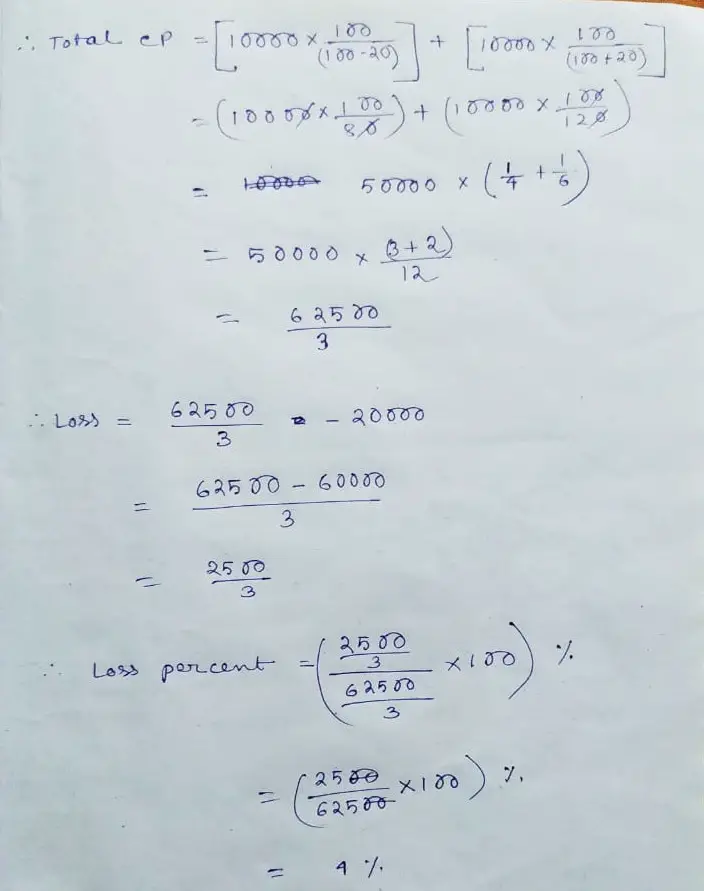 ∴ Total CP = [10000 × 100/(100-20)] + [10000 × 100/(100+20)]
= (10000 × 100/80) + (10000 × 100/120)
= 10000 50000 × (1/4 + 1/6)
= 50000 × (3+2)/12
= 62500/3
∴ Loss = 62500/3 - 20000
= 62500 - 60000/3
= 2500/3
∴ Loss percent = (2500/3/62500/3 × 100) %
= (2500/62500 × 100) %
= 4 %